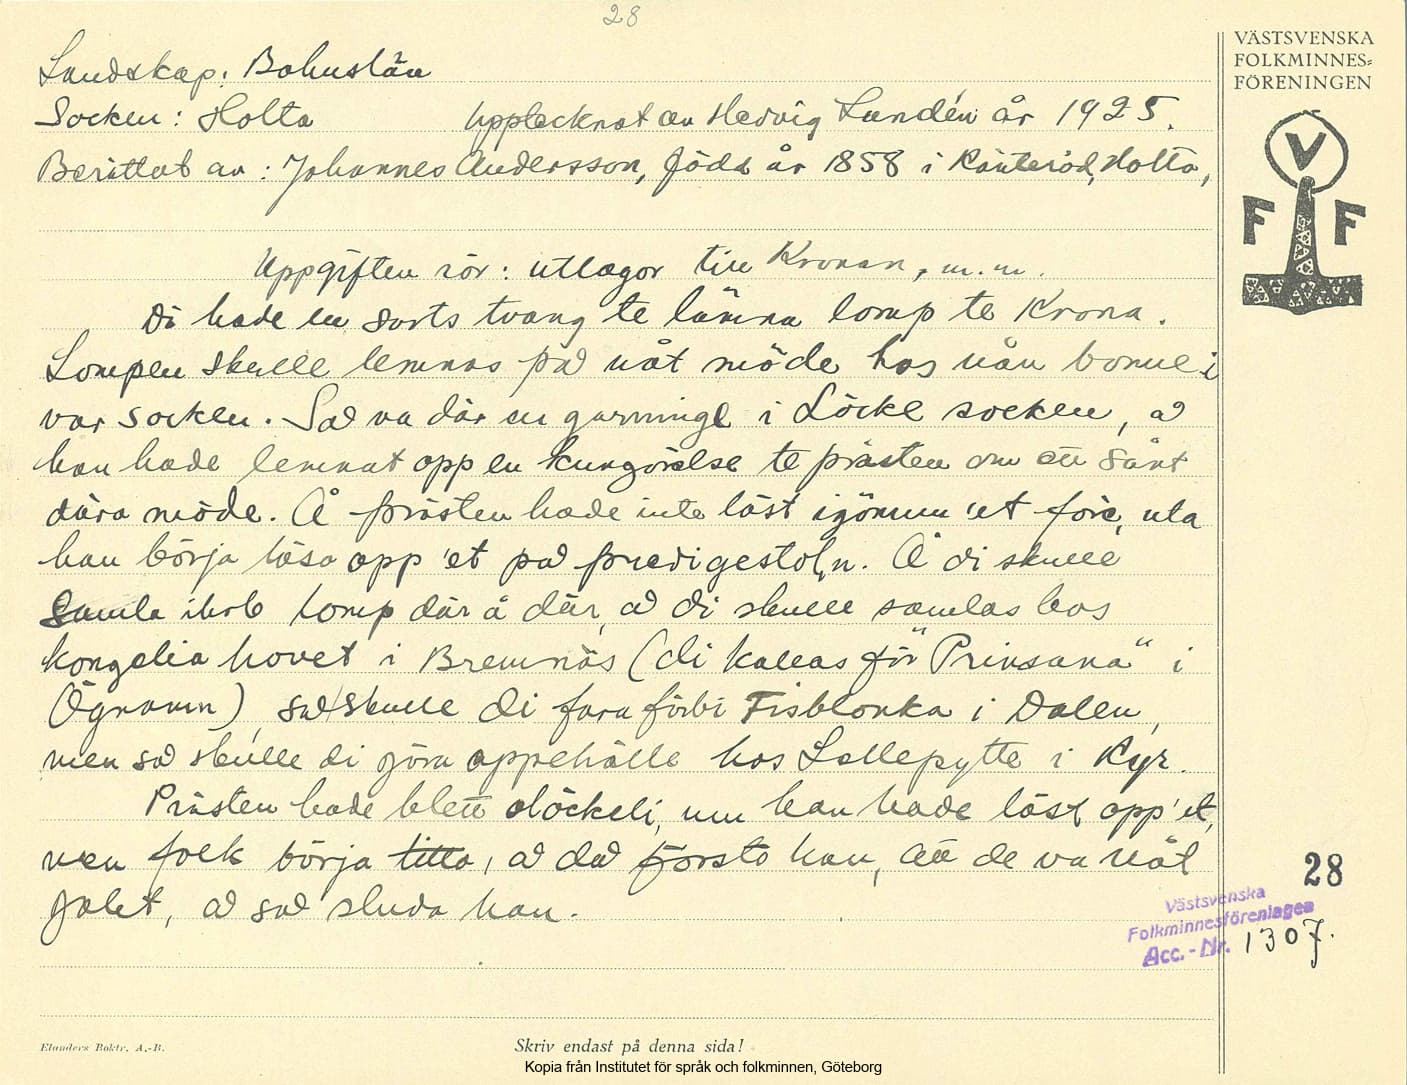 28
Landskap: Bohuslän
Socken: Holta Upptecknat av Hedvig Lundén år 1925.
Berättat av: Johannes Andersson, född år 1858 i Ranteröd, Holta,
Uppgiften rör: utlagor till Kronan, m.m.
Di hade en sorts tvang te lämna lomp te Krona.
Lompen skulle lemnas på nåt möde hos nån bonne i
var socken. Så va där en garninge i Löcke socken, å
han hade lemnat opp en kungörelse te prästen om ett sånt
dära möde. Å prästen hade inte läst igönum 'et före, uta
han börja läsa opp 'et på predigestol,n. Å di skulle
samla ihob lomp där å där, å di skulle samlas hos
kongelia hovet i Bremnäs (di kallas för "Prinsana" i
Ögnamn) så skulle di fara förbi Fisblonka i Dalen,
men så skulle di göra oppehälle hos Lellepytte i Ryr.
Prästen hade blett olöckeli, um han hade läst opp 'et,
men folk börja titta, å då försto han, att de va nåt
galet, å så sluda han.
VÄSTSVENSKA
FOLKMINNES=
FÖRENINGEN
V
F F
28
Västsvenska
Folkminnesföreningen
Acc.-Nr. 1307.
Elanders Boktr. A.-B.
Skriv endast på denna sida!
Kopia från Institutet för språk och folkminnen, Göteborg